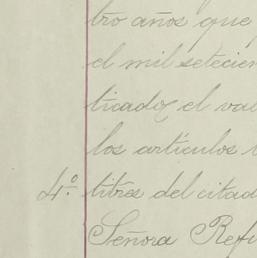 tro años que
el mil setecien
ticado, el va
los artículos
4º libres del citad
Señora Refu